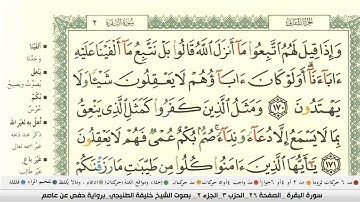 سورة البقرة ٢
وَإِذَا قِيلَ لَهُمُ ٱتَّبِعُوا۟ مَآ أَنزَلَ ٱللَّهُ قَالُوا۟ بَلْ نَتَّبِعُ مَآ أَلْفَيْنَا عَلَيْهِ
ءَابَآءَنَآ أَوَلَوْ كَانَ ءَابَآؤُهُمْ لَا يَعْقِلُونَ شَيْـًٔا وَلَا
يَهْتَدُونَ ١٧٠ وَمَثَلُ ٱلَّذِينَ كَفَرُوا۟ كَمَثَلِ ٱلَّذِى يَنْعِقُ
بِمَا لَا يَسْمَعُ إِلَّا دُعَآءً وَنِدَآءً صُمٌّۢ بُكْمٌ عُمْىٌ فَهُمْ لَا يَعْقِلُونَ
١٧١ يَـٰٓأَيُّهَا ٱلَّذِينَ ءَامَنُوا۟ كُلُوا۟ مِن طَيِّبَـٰتِ مَا رَزَقْنَـٰكُمْ
أَلْفَيْنَا
يَنْعِقُ
بُكْمٌ
سورة البقرة الصفحة ٢٦ الحزب ٣ الجزء ٢ بصوت الشيخ خليفة الطنيجي برواية حفص عن عاصم